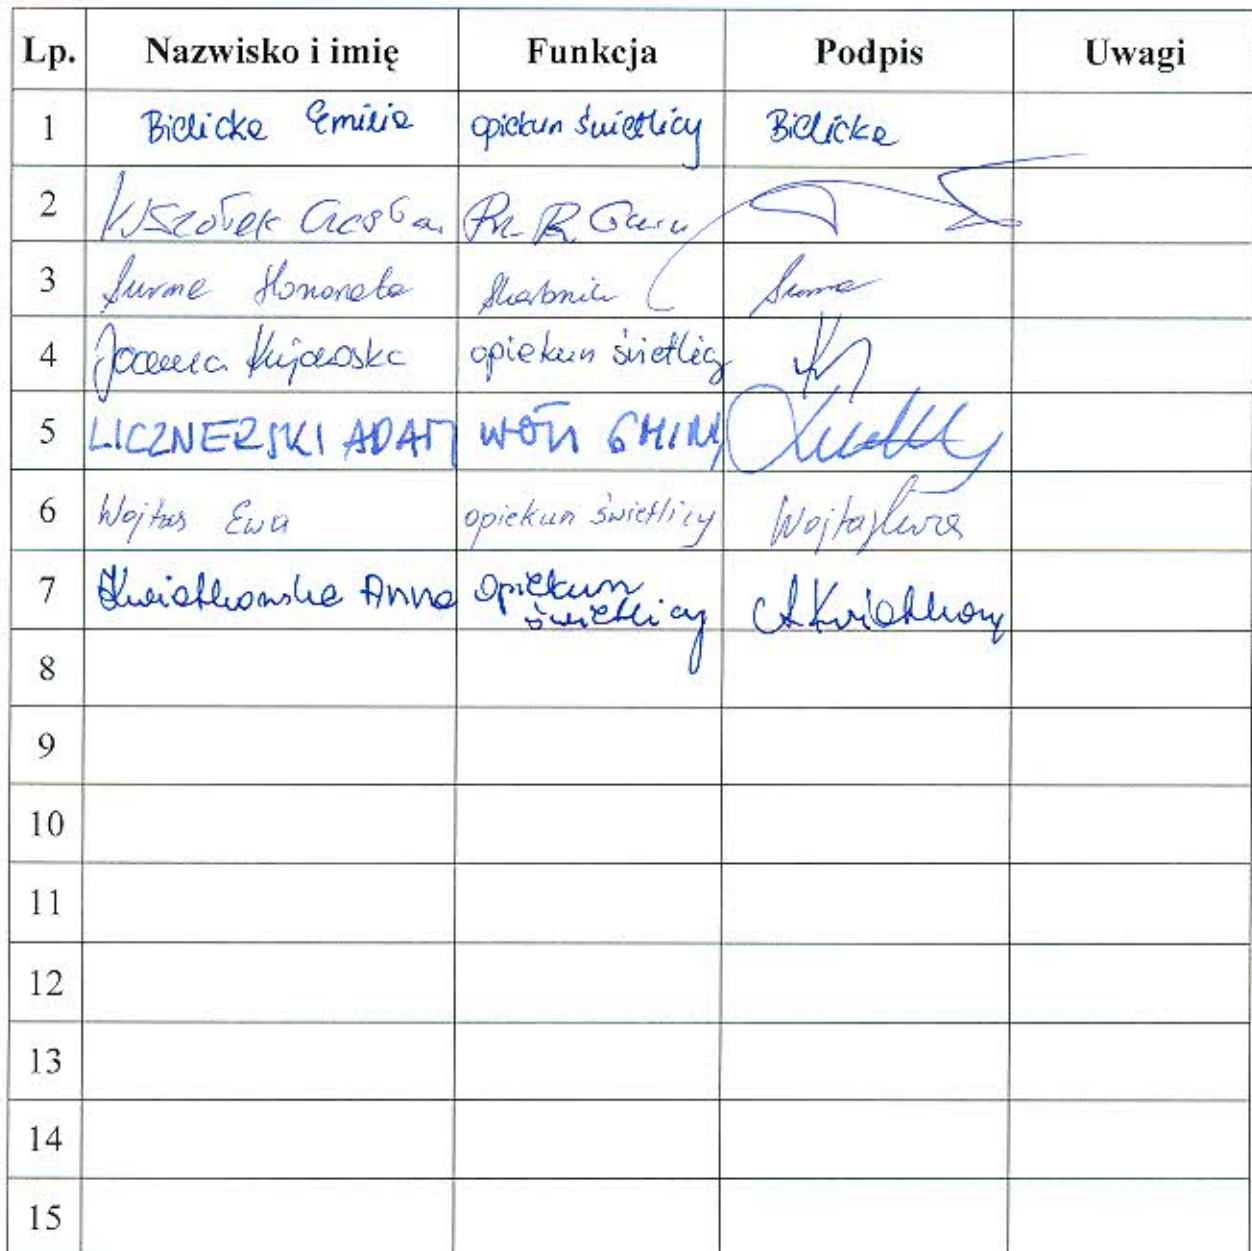 Lp. Nazwisko i imię Funkcja Podpis Uwagi
1 Bielicka Emilia opiekun świetlicy Bielicka
2
3 Surma Honorata Skarbnik Surma
4 Joanna opiekun świetlicy
5 LICZNERSKI ADAM WÓJT GMINY
6 Wojtas Ewa opiekun świetlicy Wojtas Ewa
7 Kwiatkowska Anna opiekun
świetlicy
8
9
10
11
12
13
14
15